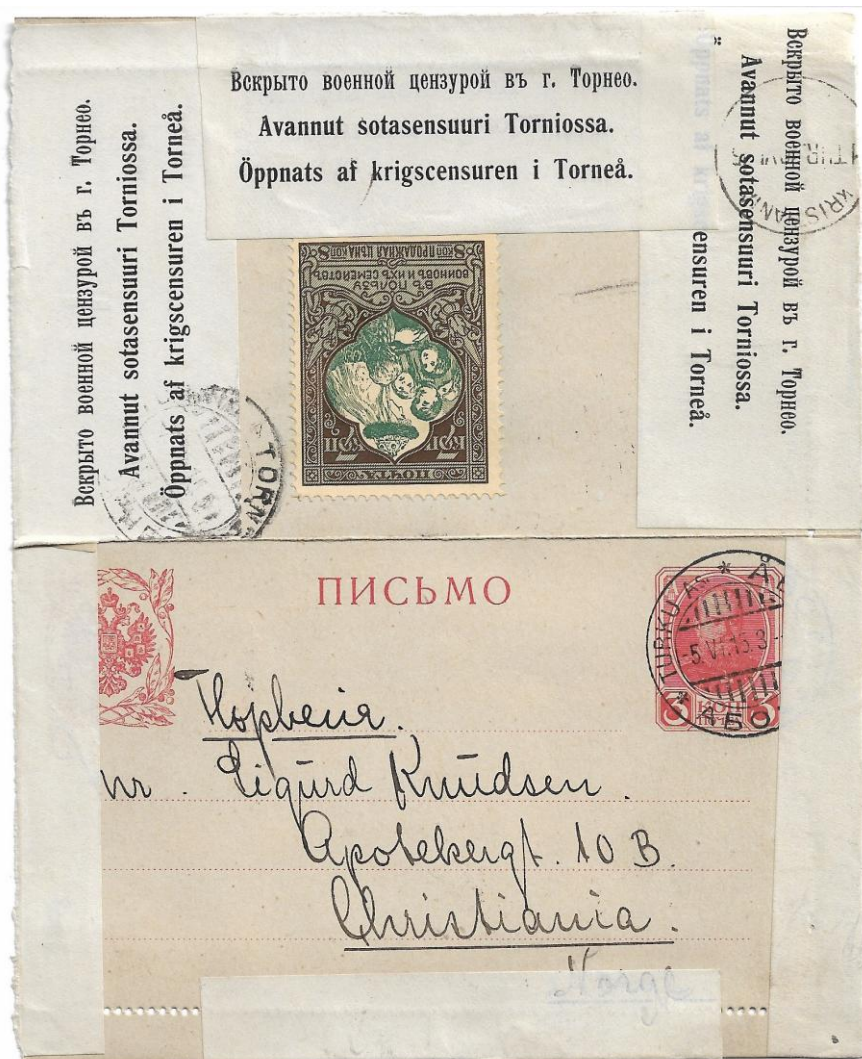 Вскрыто военной цензурой въ г. Торнео.
Avannut sotasensuuri Torniossa.
Öppnats af krigscensuren i Torneå.
Вскрыто военной цензурой въ г. Торнео.
Avannut sotasensuuri Torniossa.
Öppnats af krigscensuren i Torneå.
Вскрыто военной цензурой въ г. Торнео.
Avannut sotasensuuri Torniossa.
Öppnats af krigscensuren i Torneå.
KRISTIANIA
TUR
8 КОП ПРОДАЖНАЯ ЦѢНА КОП 8
ВЪ ПОЛЬЗУ
ВОИНОВЪ И ИХЪ СЕМЕЙСТВЪ
7 КОП КОП 7
ПОЧТА
TORN
ПИСЬМО
TURKU * Å
5.VI.15.3
* АБО
3 КОП 3
Норвегiя.
nr. Sigurd Knudsen.
Apotekergt. 10 B.
Christiania.
Norge